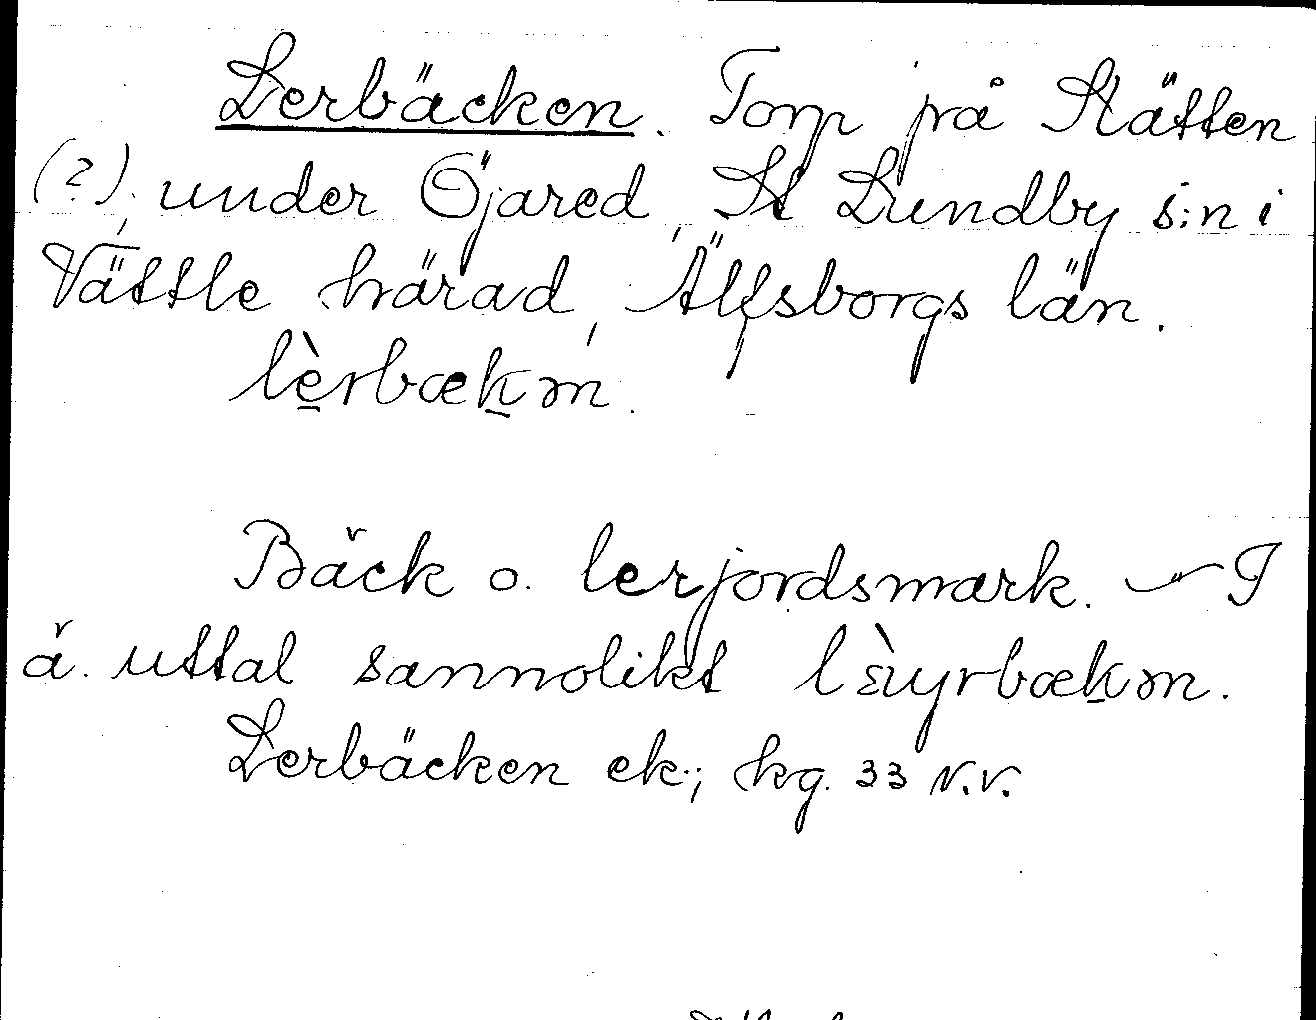 Lerbäcken. Torp på Slätten
(?), under Öjared, St Lundby s:n i
Vättle härad, Älfsborgs län.
lèrbækən.
Bäck o. lerjordsmark. — I
ä. uttal sannolikt lèɩyrbækən.
Lerbäcken ek.; kg. 33 N.V.